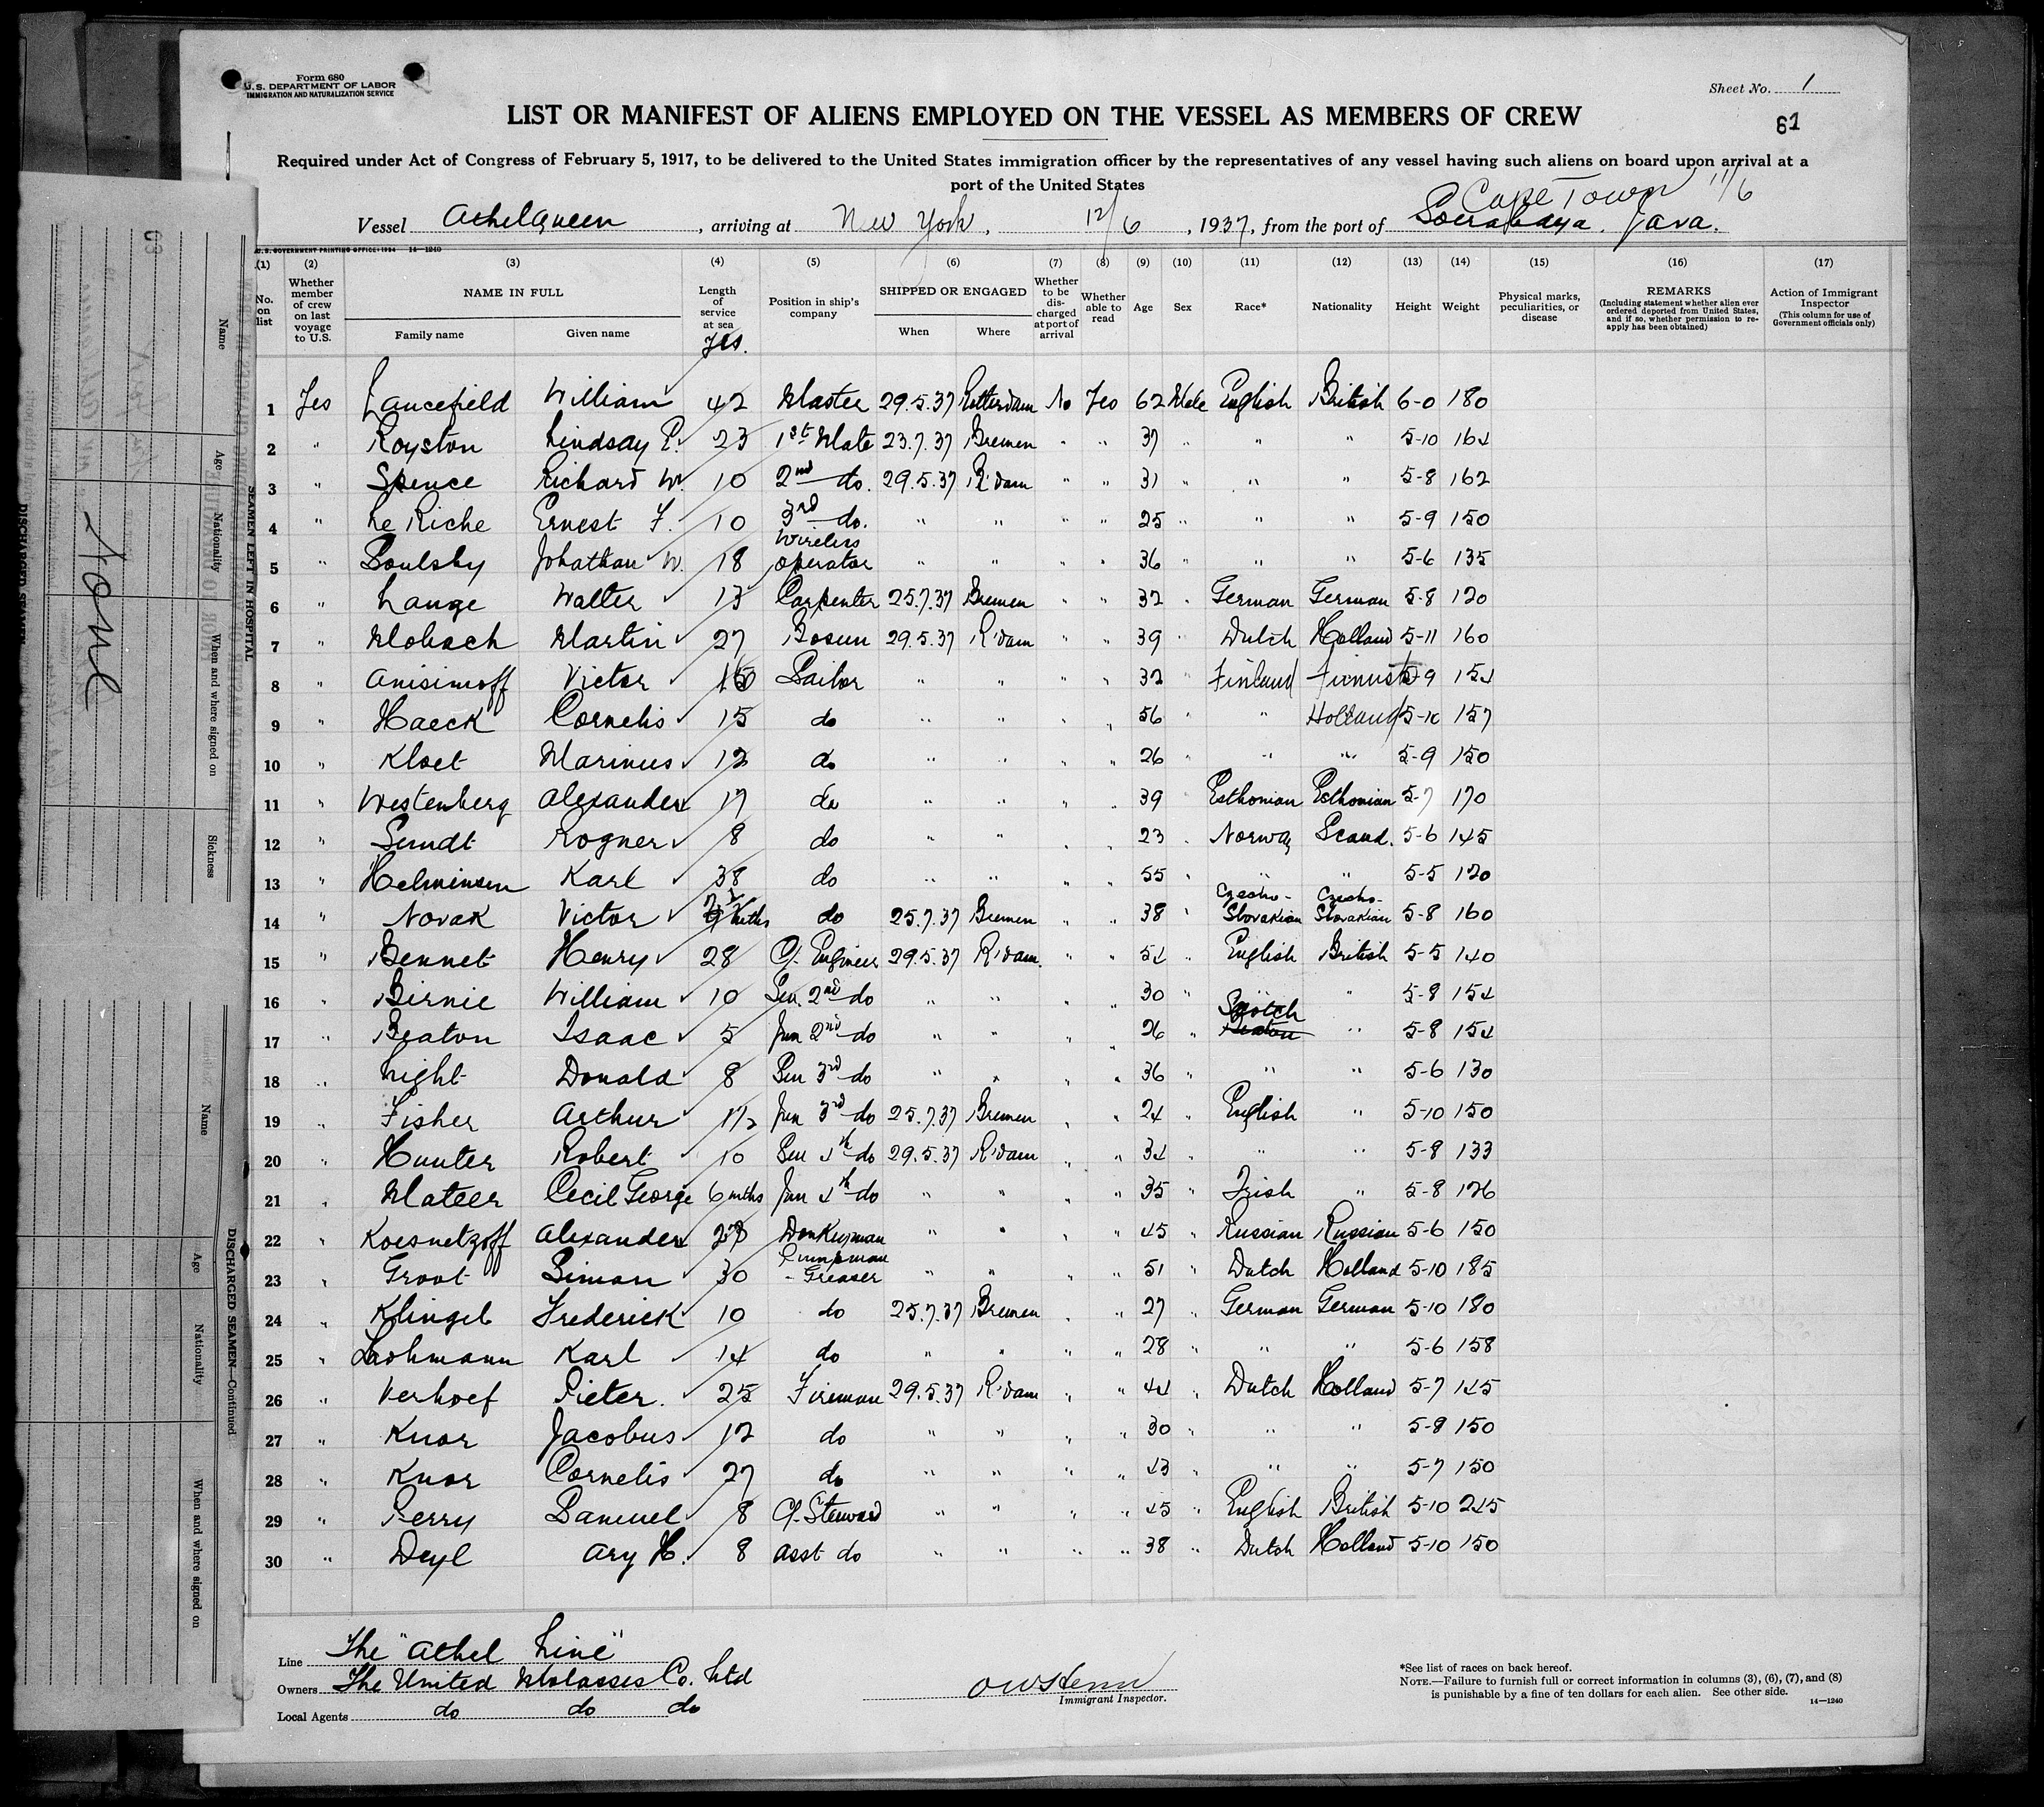 Form 680
U.S. DEPARTMENT OF LABOR
IMMIGRATION AND NATURALIZATION SERVICE
Sheet No. 1
61
LIST OR MANIFEST OF ALIENS EMPLOYED ON THE VESSEL AS MEMBERS OF CREW
Required under Act of Congress of February 5, 1917, to be delivered to the United States immigration officer by the representatives of any vessel having such aliens on board upon arrival at a
port of the United States
Cape Town 11/6
Vessel Athelqueen, arriving at New York, 12/6, 1937, from the port of Sourabaya. Java.
U.S. GOVERNMENT PRINTING OFFICE: 1934 14-1240
(1) (2) (3) (4) (5) (6) (7) (8) (9) (10) (11) (12) (13) (14) (15) (16) (17)
No. on list Whether member of crew on last voyage to U.S. NAME IN FULL Family name Given name Length of service at sea Position in ship's company SHIPPED OR ENGAGED When Where Whether to be discharged at port of arrival Whether able to read Age Sex Race* Nationality Height Weight Physical marks, peculiarities, or disease REMARKS (Including statement whether alien ever ordered deported from United States, and if so, whether permission to reapply has been obtained) Action of Immigrant Inspector (This column for use of Government officials only)
yrs.
1 Yes Lancefield William 42 Master 29.5.37 Rotterdam No Yes 62 Male English British 6-0 180
2 " Royston Lindsay P. 23 1st Mate 23.7.37 Bremen " " 37 " " " 5-10 164
3 " Spence Richard W. 10 2nd do. 29.5.37 R'dam " " 31 " " " 5-8 162
4 " Le Riche Ernest F. 10 3rd do. " " " " 25 " " " 5-9 150
5 " Soulsby Johathan W. 18 Wireless operator " " " " 36 " " " 5-6 135
6 " Lange Walter 13 Carpenter 25.7.37 Bremen " " 32 " German German 5-8 120
7 " Mobach Martin 27 Bosun 29.5.37 R'dam " " 39 " Dutch Holland 5-11 160
8 " Anisimoff Victor Sailor " " " " 32 " Finland Finnish 5-9 154
9 " Haeck Cornelis 15 do " " " " 56 " " Holland 5-10 157
10 " Kloet Marinus 12 do " " " " 26 " " " 5-9 150
11 " Westenberg Alexander 17 do " " " " 39 " Esthonian Esthonian 5-7 170
12 " Sundt Rogner 8 do " " " " 23 " Norway Scand. 5-6 145
13 " Helminsen Karl 38 do " " " " 55 " " " 5-5 120
14 " Novak Victor mths do 25.7.37 Bremen " " 38 " Czecho-Slovakian Czecho-Slovakian 5-8 160
15 " Bennet Henry 28 C/. Engineer 29.5.37 R'dam. " " 54 " English British 5-5 140
16 " Birnie William 10 Sen. 2nd do " " " " 30 " " " 5-8 154
17 " Beaton Isaac 5 Jun 2nd do " " " " 26 " Scotch " 5-8 154
18 " Light Donald 8 Sen 3rd do " " " " 36 " " " 5-6 130
19 " Fisher Arthur 1½ Jun 3rd do 25.7.37 Bremen " " 24 " English " 5-10 150
20 " Hunter Robert 10 Sen 4th do 29.5.37 R'dam " " 34 " " " 5-8 133
21 " Mateer Cecil George 6 mths Jun 4th do " " " " 35 " Irish " 5-8 126
22 " Koesnetzoff Alexander Donkeyman " " " " 45 " Russian Russian 5-6 150
23 " Groot Simon 30 Pumpman - Greaser " " " " 51 " Dutch Holland 5-10 185
24 " Klingel Frederick 10 do 25.7.37 Bremen " " 27 " German German 5-10 180
25 " Lashmann Karl 14 do " " " " 28 " " " 5-6 158
26 " Verhoef Pieter. 25 Fireman 29.5.37 R'dam " " 44 " Dutch Holland 5-7 145
27 " Knor Jacobus 12 do " " " " 30 " " " 5-8 150
28 " Knor Cornelis 27 do " " " " 43 " " " 5-7 150
29 " Perry Samuel 8 C/. Steward " " " " 45 " English British 5-10 245
30 " Deyl Ary H. 8 Asst do " " " " 38 " Dutch Holland 5-10 150
Line The "Athel Line"
Owners The United Molasses Co. Ltd
Local Agents do do do
Immigrant Inspector.
*See list of races on back hereof.
NOTE.—Failure to furnish full or correct information in columns (3), (6), (7), and (8)
is punishable by a fine of ten dollars for each alien. See other side.
14—1240
SEAMEN LEFT IN HOSPITAL
Name
Age
Nationality
When and where signed on
Sickness
None
DISCHARGED SEAMEN—Continued
Name
Age
Nationality
When and where signed on